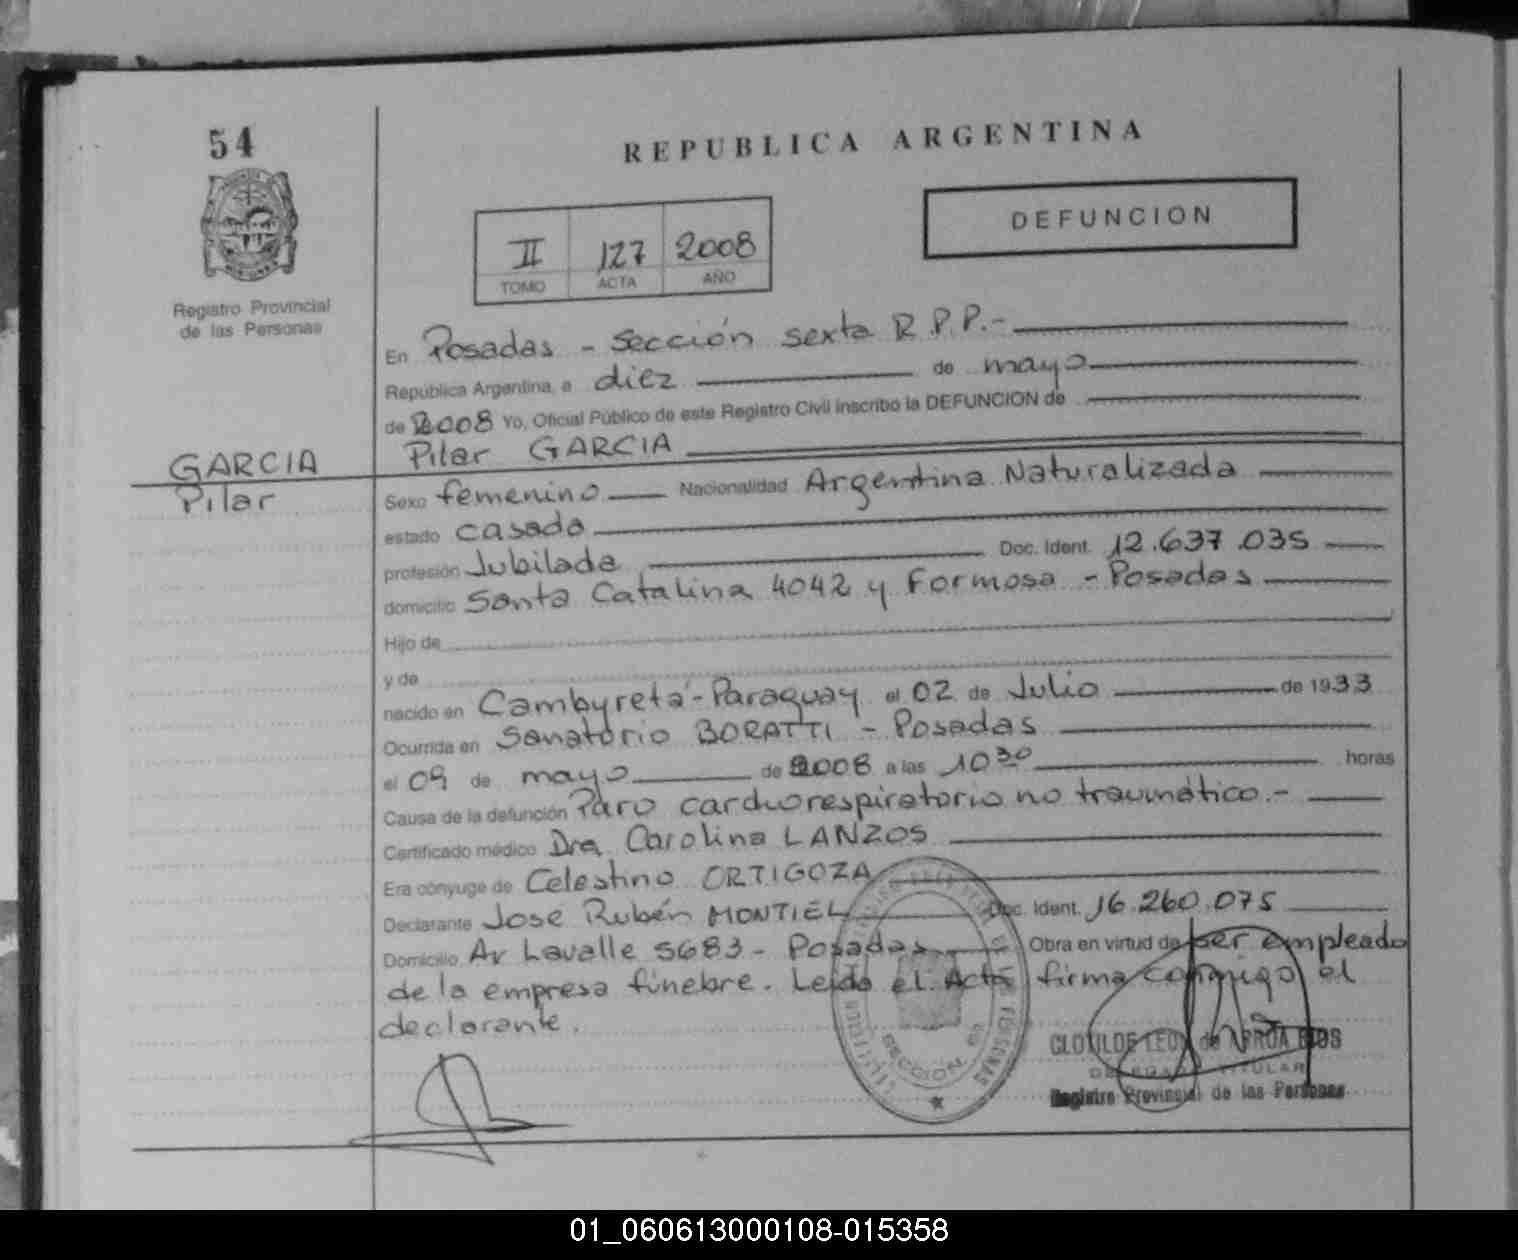 54
REPUBLICA ARGENTINA
DEFUNCION
II 127 2008
TOMO ACTA AÑO
Registro Provincial
de las Personas
En Posadas - Sección sexta R.P.P.-
República Argentina, a diez de mayo
de 2008 Yo, Oficial Público de este Registro Civil inscribo la DEFUNCION de
Pilar GARCIA
GARCIA
Pilar
Sexo femenino Nacionalidad Argentina Naturalizada
estado casada
profesión Jubilada Doc. Ident. 12.637.035
domicilio Santa Catalina 4042 y Formosa - Posadas
Hijo de
y de
nacido en Cambyretá-Paraguay el 02 de Julio de 1933
Ocurrida en Sanatorio BORATTI - Posadas
el 09 de mayo de 2008 a las 10 30 horas
Causa de la defunción Paro cardiorespiratorio no traumático.-
Certificado médico Dra. Carolina LANZOS
Era cónyuge de Celestino ORTIGOZA
Declarante José Rubén MONTIEL Doc. Ident. 16.260.075
Domicilio Av Lavalle 5683 - Posadas Obra en virtud de ser empleado
de la empresa fúnebre. Leída el Acta firma conmigo el
declarante.
SECCION
CLOTILDE LEON de
DELEGADA TITULAR
Registro Provincial de las Personas
01_060613000108-015358